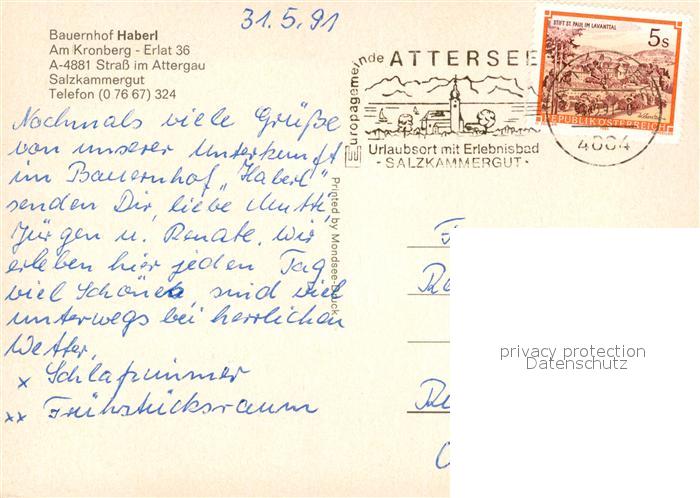 31.5.91
Bauernhof Haberl
Am Kronberg - Erlat 36
A-4881 Straß im Attergau
Salzkammergut
Telefon (0 76 67) 324
Nochmals viele Grüße
von unserer Unterkunft
im Bauernhof „Haberl"
senden Dir, liebe Mutti,
Jürgen u. Renate. Wir
erleben hier jeden Tag
viel Schönes, sind viel
unterwegs bei herrlichen
Wetter.
x Schlafzimmer
xx Frühstücksraum
Printed by Mondsee-Druck
Europagemeinde
ATTERSEE
Urlaubsort mit Erlebnisbad
- SALZKAMMERGUT -
STIFT ST. PAUL IM LAVANTTAL
5 S
REPUBLIK ÖSTERREICH
4864
privacy protection
Datenschutz